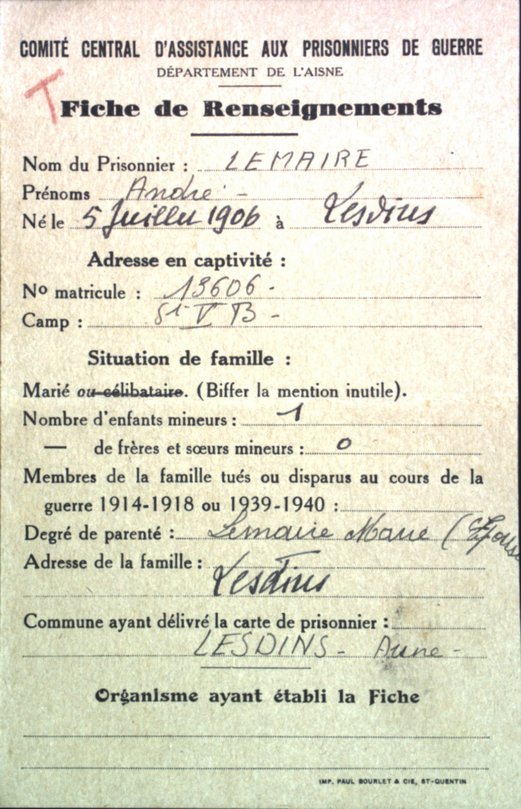 COMITÉ CENTRAL D'ASSISTANCE AUX PRISONNIERS DE GUERRE
DÉPARTEMENT DE L'AISNE
T
Fiche de Renseignements
Nom du Prisonnier : LEMAIRE
Prénoms André -
Né le 5 Juillet 1906 à Lesdins
Adresse en captivité :
No matricule : 13606 -
Camp : St V B -
Situation de famille :
Marié ou célibataire. (Biffer la mention inutile).
Nombre d'enfants mineurs : 1
— de frères et sœurs mineurs : 0
Membres de la famille tués ou disparus au cours de la
guerre 1914-1918 ou 1939-1940 :
Degré de parenté : Lemaire Marie (Epouse
Adresse de la famille : Lesdins
Commune ayant délivré la carte de prisonnier :
LESDINS - Aisne -
Organisme ayant établi la Fiche
IMP. PAUL BOURLET & CIE, ST-QUENTIN